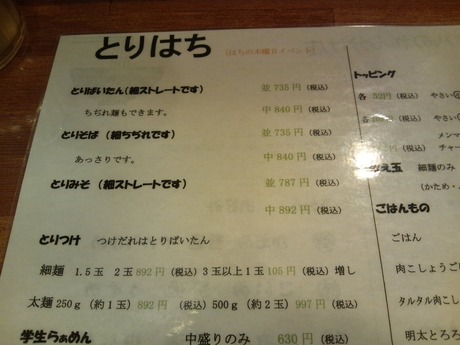 とりはち (はちの木曜日イベント)
とりぱいたん(細ストレートです) 並 735円 (税込)
ちぢれ麺もできます。 中 840円 (税込)
とりそば (細ちぢれです) 並 735円 (税込)
あっさりです。 中 840円 (税込)
とりみそ (細ストレートです) 並 787円 (税込)
中 892円 (税込)
とりつけ つけだれはとりぱいたん
細麺 1.5玉 2玉 892円 (税込) 3玉以上1玉 105円 (税込) 増し
太麺 250g (約1玉) 892円 (税込) 500g (約2玉) 997円 (税込)
学生らぁめん 中盛りのみ 630円 (税込)
トッピング
各 52円 (税込) やさい
各 (税込) やさい
メンマ
円 (税込) チャー
え玉 細麺のみ
(かため・
ごはんもの
ごはん
肉こしょうご
タルタル肉こし
明太とろろ